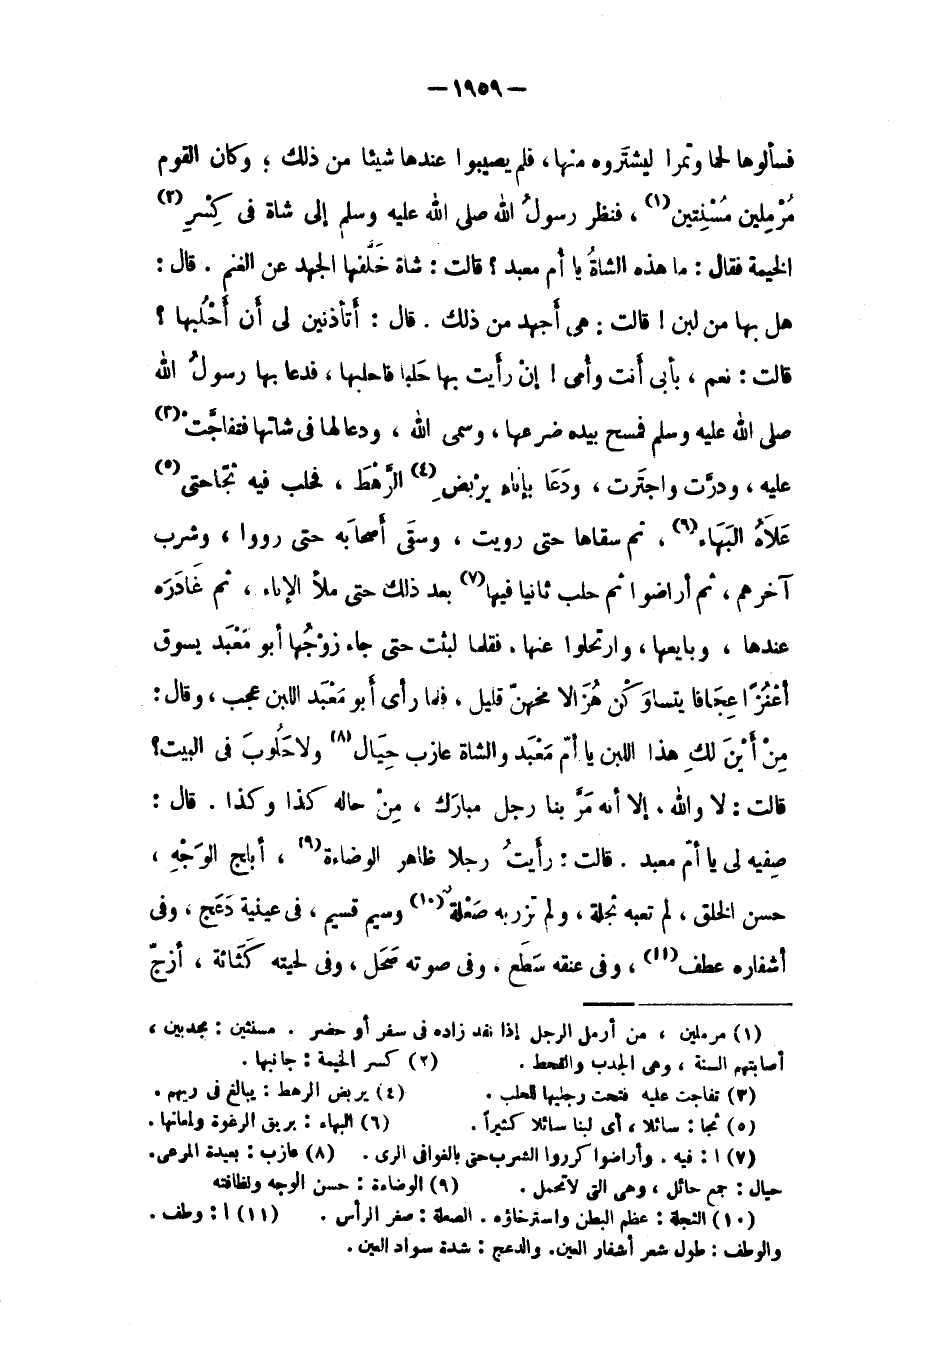 — ١٩٥٩ —
فسألوها لحما وتمرا ليشتَروه منها، فلم يصيبوا عندها شيئا من ذلك ؛ وكان القوم
مُرْمِلين مُسْنِتين(١) ، فنظر رسولُ الله صلى الله عليه وسلم إلى شاة فى كِسْرِ(٢)
الخيمة فقال : ما هذه الشاةُ يا أم معبد ؟ قالت : شاة خَلَّفها الجهد عن الغنم . قال :
هل بها من لبن ! قالت : هى أَجهد من ذلك . قال : أَتأذنين لى أن أَحْلُبها ؟
قالت : نعم ، بأبى أنت وأمى ! إنْ رأَيت بها حَلبا فاحلبها ، فدعا بها رسولُ الله
صلى الله عليه وسلم فمسح بيده ضرعها ، وسمى الله ، ودعا لها فى شاتها فتفاجَّتْ(٣)
عليه ، ودرَّت واجترت ، ودَعَا بإناء يرْبض(٤) الرَّهْطَ ، فحلب فيه ثجّا حتى(٥)
عَلاَهُ البَهَاء(٦) ، ثم سقاها حتى رويت ، وسقَى أَصحابَه حتى رووا ، وشرب
آخرهم ، ثم أراضوا ثم حلب ثانيا فيها(٧) بعد ذلك حتى ملأ الإناء ، ثم غَادَرَه
عندها ، وبايعها ، وارتحلوا عنها . فقلما لبثت حتى جاء زوْجُها أبو مَعْبَد يسوق
أعْنُزًا عِجَافا يتساوَكْن هُزَالا مخهنّ قليل ، فلما رأى أَبو مَعْبَد اللبن عجب ، وقال :
مِنْ أَيْنَ لكِ هذا اللبن يا أمّ مَعْبَد والشاة عازب حِيَال(٨) ولا حَلُوبَ فى البيت؟
قالت : لا والله ، إلا أنه مَرَّ بنا رجل مبارَك ، مِنْ حاله كذا وكذا . قال :
صِفيه لى يا أمّ معبد . قالت : رأَيتُ رجلا ظاهر الوضاءة(٩) ، أبلج الوَجْهِ ،
حسن الخلق ، لم تعبه نجلة ، ولم تزر به صَعْلة(١٠) وسيم قسيم ، فى عينية دَعَج ، وفى
أشفاره عطف(١١) ، وفى عنقه سَطَع ، وفى صوته صَحَل ، وفى لحيته كَثَاثة ، أزجّ
(١) مرملين ، من أرمل الرجل إذا نفد زاده فى سفر أو حضر . مسنتين : مجدبين ،
أصابتهم السنة ، وهى الجدب والقحط . (٢) كسر الخيمة : جانبها .
(٣) تفاجت عليه فتحت رجليها للحلب . (٤) يربض الرهط : يبالغ فى ريهم .
(٥) ثجا : سائلا ، أى لبنا سائلا كثيراً . (٦) البهاء : بريق الرغوة ولمعانها .
(٧) ا : فيه . وأراضوا كرروا الشرب حتى بالغوا فى الرى . (٨) عازب : بعيدة المرعى .
حيال : جمع حائل ، وهى التى لا تحمل . (٩) الوضاءة : حسن الوجه ونظافته
(١٠) النجلة : عظم البطن واسترخاؤه . الصعلة : صفر الرأس . (١١) ا : وطف .
والوطف : طول شعر أشفار العين. والدعج : شدة سواد العين .